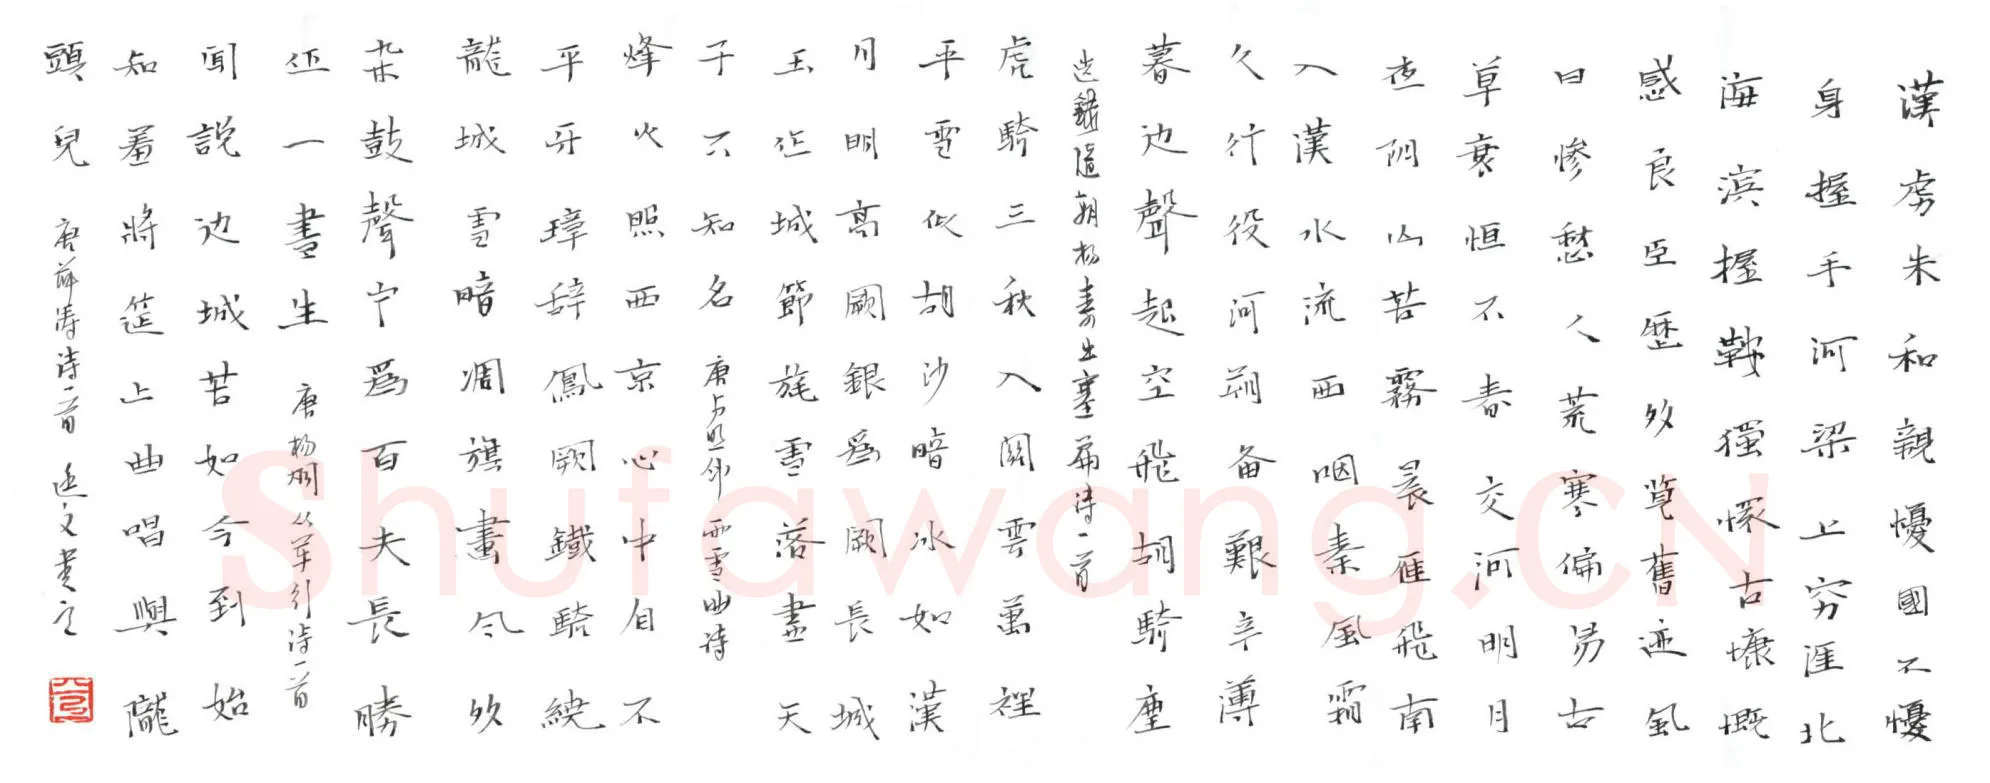 漢虏未和親懮國不懮
身握手河梁上穷涯北
海滨握鞍獨懷古慷慨
感良臣歷多览舊迹風
日惨愁人荒寒偏易古
草衰恒不春交河明月
夜阴山苦霧晨雁飛南
入漢水流西咽秦風霜
久行役河朔备艱辛薄
暮边聲起空飛胡騎塵
选錄隋朝杨素出塞篇诗一首
虎騎三秋入關雲萬裡
平雪似胡沙暗冰如漢
月明高闕銀為闕長城
玉作城節旄雪落盡天
子不知名 唐卢照邻雨雪曲诗
烽火照西京心中自不
平牙璋辞鳳阙鐵騎繞
龍城雪暗凋旗畫風多
杂鼓聲宁為百夫長勝
作一書生 唐杨炯从军行诗一首
闻説边城苦如今到始
知羞將筵上曲唱與隴
頭兒 唐薛涛诗一首 文書之
Shufawang.CN